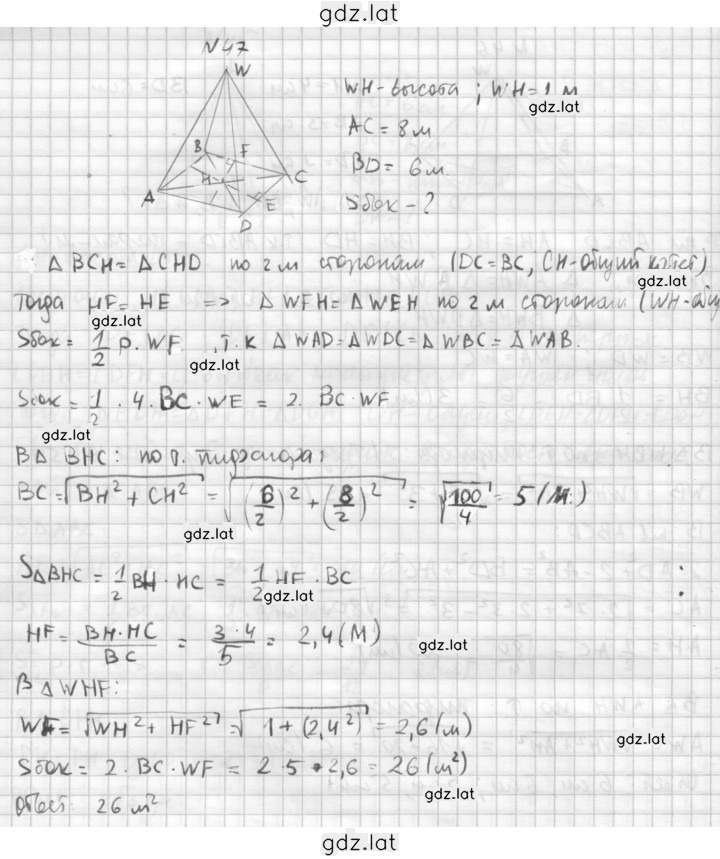 gdz.lat
N47
W
WH-высота ; WH=1 м
gdz.lat
AC = 8 м
BD = 6 м
Sбок - ?
B F C
A H E
D
Δ BCH = Δ CHD по 2м сторонам (DC=BC, CH-общий катет)
gdz.lat
Тогда HF = HE => Δ WFH = Δ WEH по 2м сторонам (WH-общ
gdz.lat
Sбок = 1/2 P. WF. , т.к Δ WAD = Δ WDC = Δ WBC = Δ WAB.
gdz.lat
Sбок = 1/2 · 4. BC · WE = 2. BC · WF
gdz.lat
В Δ BHC: по т. пифагора:
BC = √BH² + CH² = √(6/2)² + (8/2)² = √100/4 = 5 (м)
gdz.lat
SΔBHC = 1/2 BH · HC = 1/2 HF · BC
gdz.lat
HF = BH·HC/BC = 3·4/5 = 2,4 (м)
gdz.lat
В Δ WHF:
WF = √WH² + HF² = √1 + (2,4²) = 2,6 (м)
gdz.lat
Sбок = 2 · BC · WF = 2 · 5 · 2,6 = 26 (м²)
gdz.lat
Ответ: 26 м²
gdz.lat